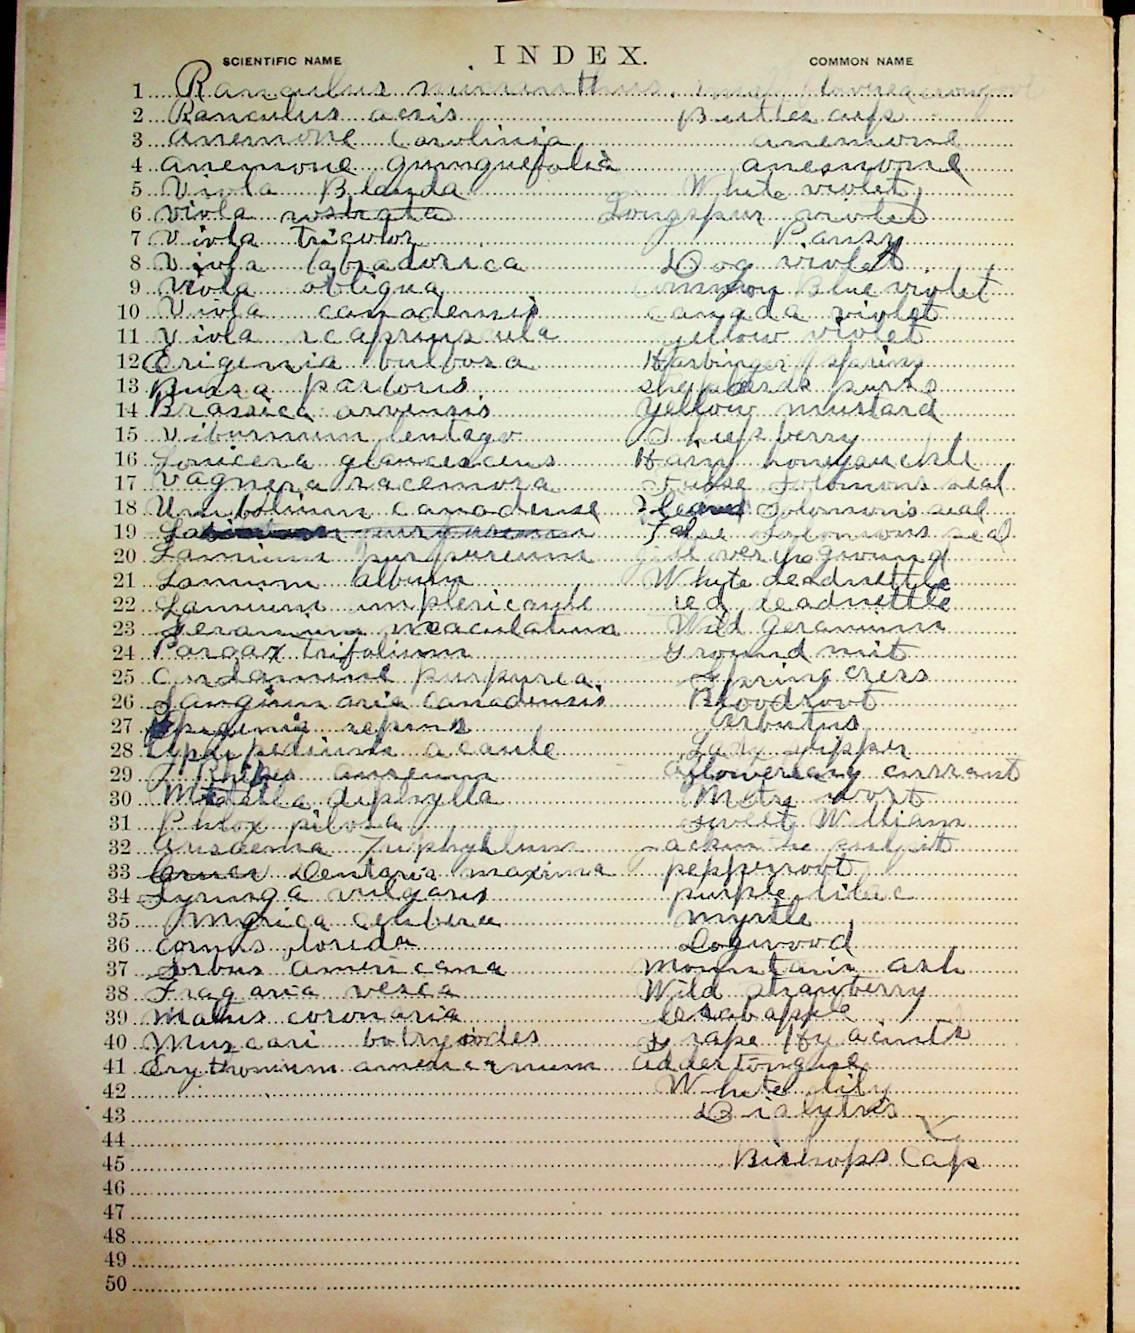 INDEX.
SCIENTIFIC NAME COMMON NAME
1 Ranculus micranthus small flowered
2 Ranculus acris Buttercups
3 Anemone Carolinia anemone
4 Anemone quinquefolia anesmone
5 Viola Blanda White violet
6 Viola rostrata Longspur violet
7 Viola tricolor Pansy
8 Viola labradorica Dog violet
9 Viola obliqua Blue violet
10 Viola canadensis canada violet
11 Viola scapriuscula yellow violet
12 Erigenia bulbosa Harbinger Spring
13 Bursa pastoris shepherds purse
14 Brassica arvensis Yellow mustard
15 Viburnum lentago Sheepberry
16 Lonicera glaucescens Hairy honeysuckle
17 Vagnera racemosa False Solomons seal
18 Unifolium canadense Solomon's seal
19 False Solomons seal
20 Lamium purpureum Gill over the ground
21 Lamium album White deadnettle
22 Lamium amplexicaule red deadnettle
23 Geranium maculatum Wild geranium
24 Panax Trifolium Ground nut
25 Cardamine purpurea Spring cress
26 Sanguinaria Canadensis Bloodroot
27 Epigenia repens Arbutus
28 acaule Lady slipper
29 Ribes aureum flowering currant
30 Mitella diphylla Mitre wort
31 Phlox pilosa sweet William
32 Arisaema Triphyllum
33 Dentaria maxima pepperroot
34 Syringa vulgaris purple lilac
35 Myrica cerifera myrtle
36 Cornus florida Dogwood
37 Sorbus americana Mountain ash
38 Fragaria vesca Wild strawberry
39 Malus coronaria Crabapple
40 Muscari botryoides Grape Hyacinth
41 Erythonium americanum addertongue
42 White lily
43
44
45 Bishops Cap
46
47
48
49
50